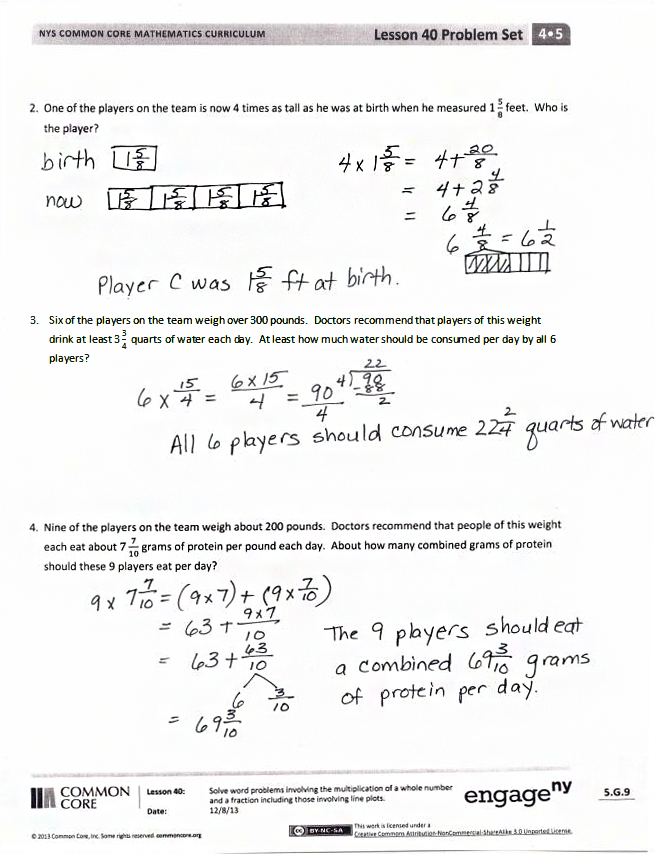 NYS COMMON CORE MATHEMATICS CURRICULUM Lesson 40 Problem Set 4•5
2. One of the players on the team is now 4 times as tall as he was at birth when he measured 1 5/8 feet. Who is
the player?
birth 1 5/8
now 1 5/8 1 5/8 1 5/8 1 5/8
4 x 1 5/8 = 4 + 20/8
= 4 + 2 4/8
= 6 4/8
6 4/8 = 6 1/2
Player C was 1 5/8 ft at birth.
3. Six of the players on the team weigh over 300 pounds. Doctors recommend that players of this weight
drink at least 3 3/4 quarts of water each day. At least how much water should be consumed per day by all 6
players?
6 x 15/4 = 6 x 15/4 = 90/4
22
4 90
- 88
2
All 6 players should consume 22 2/4 quarts of water
4. Nine of the players on the team weigh about 200 pounds. Doctors recommend that people of this weight
each eat about 7 7/10 grams of protein per pound each day. About how many combined grams of protein
should these 9 players eat per day?
9 x 7 7/10 = (9 x 7) + (9 x 7/10)
= 63 + 9 x 7/10
= 63 + 63/10
6 3/10
= 69 3/10
The 9 players should eat
a combined 69 3/10 grams
of protein per day.
COMMON CORE
Lesson 40: Solve word problems involving the multiplication of a whole number
and a fraction including those involving line plots.
Date: 12/8/13
engage ny
5.G.9
© 2013 Common Core, Inc. Some rights reserved. commoncore.org
cc BY-NC-SA
This work is licensed under a
Creative Commons Attribution-NonCommercial-ShareAlike 3.0 Unported License.